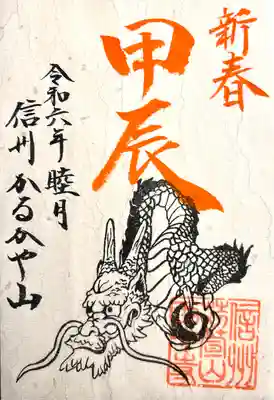 新春
甲辰
令和六年 睦月
信州 かるかや山